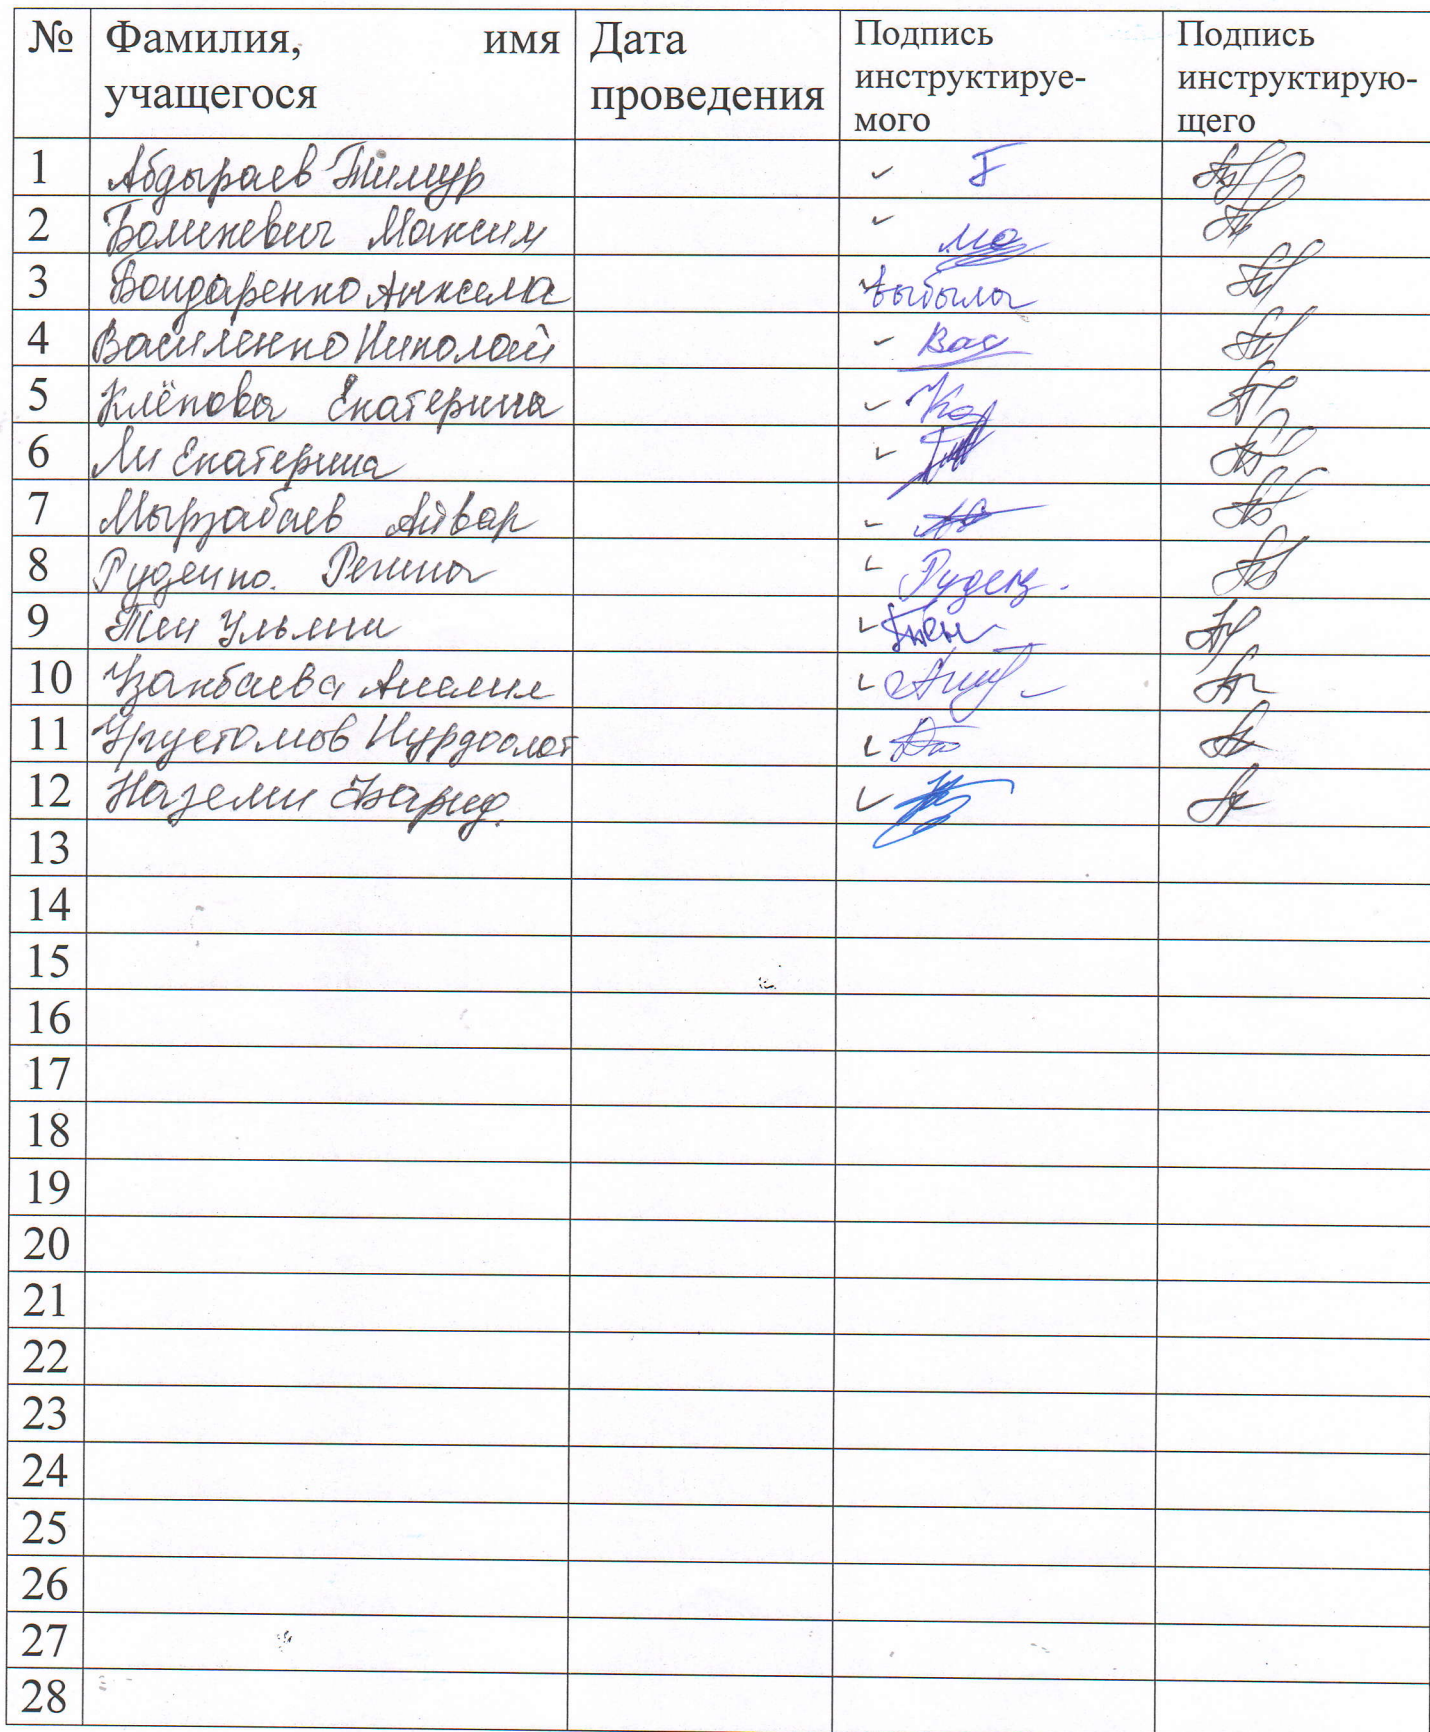 № Фамилия, имя учащегося Дата проведения Подпись инструктируе-мого Подпись инструктирую-щего
1 Абдыраев Тимур
2 Максим
3 Бондаренко выбыла
4 Василенко Николай Вас
5 Клёпова Екатерина
6 Ли Екатерина
7 Мырзабаев Айвар
8 Руденко. Регина
9 Тен Ульяна Тен
10 Узакбаева Амелия
11 Нурдоолот
12 Наземи Фарид.
13
14
15
16
17
18
19
20
21
22
23
24
25
26
27
28